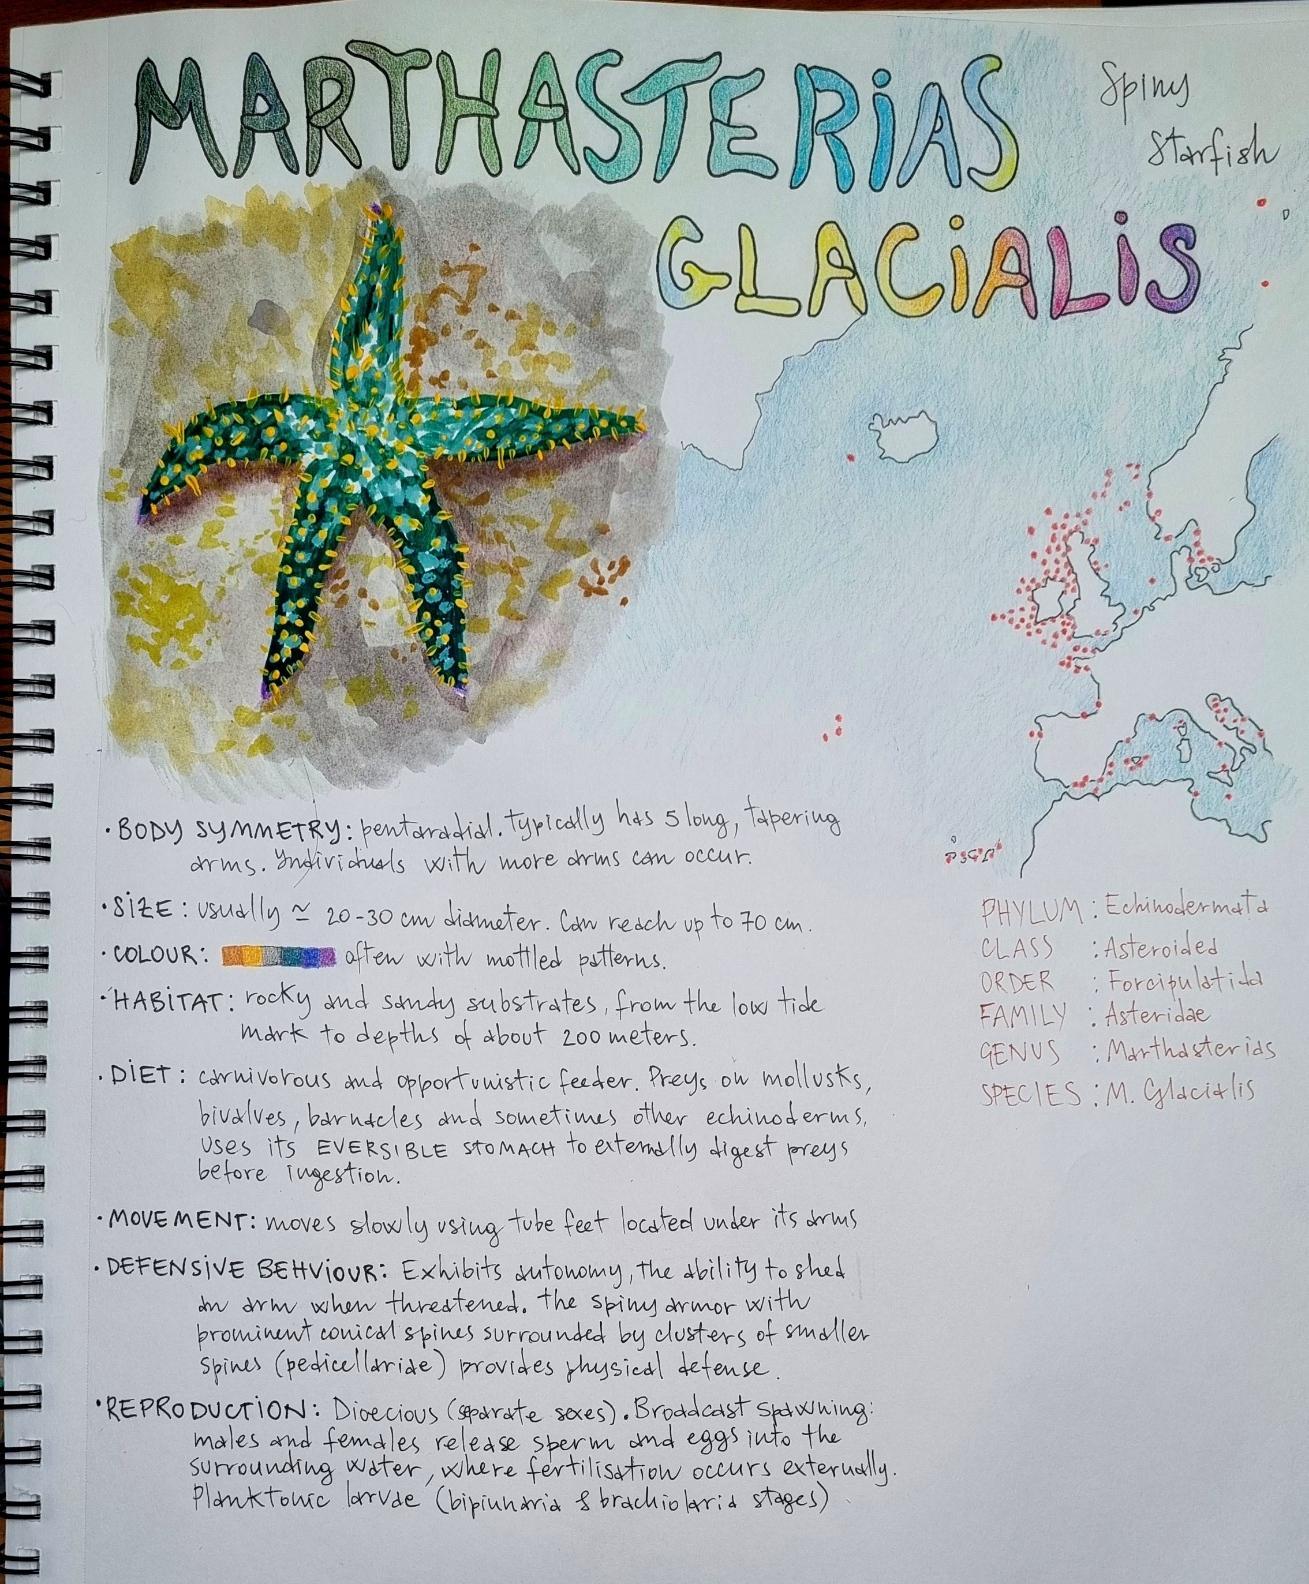 MARTHASTERIAS
GLACIALIS
Spiny
Starfish
• BODY SYMMETRY: pentaradial. typically has 5 long, tapering
arms. Individuals with more arms can occur.
• SIZE: usually ≃ 20-30 cm diameter. Can reach up to 70 cm.
• COLOUR: often with mottled patterns.
• HABITAT: rocky and sandy substrates, from the low tide
mark to depths of about 200 meters.
• DIET: carnivorous and opportunistic feeder. Preys on mollusks,
bivalves, barnacles and sometimes other echinoderms,
uses its EVERSIBLE STOMACH to externally digest preys
before ingestion.
• MOVEMENT: moves slowly using tube feet located under its arms
• DEFENSIVE BEHVIOUR: Exhibits autonomy, the ability to shed
an arm when threatened. the spiny armor with
prominent conical spines surrounded by clusters of smaller
spines (pedicellariae) provides physical defense.
• REPRODUCTION: Dioecious (separate sexes). Broadcast spawning:
males and females release sperm and eggs into the
surrounding water, where fertilisation occurs externally.
Planktonic larvae (bipinnaria & brachiolaria stages)
PHYLUM: Echinodermata
CLASS: Asteroidea
ORDER: Forcipulatida
FAMILY: Asteridae
GENUS: Marthasterias
SPECIES: M. Glacialis